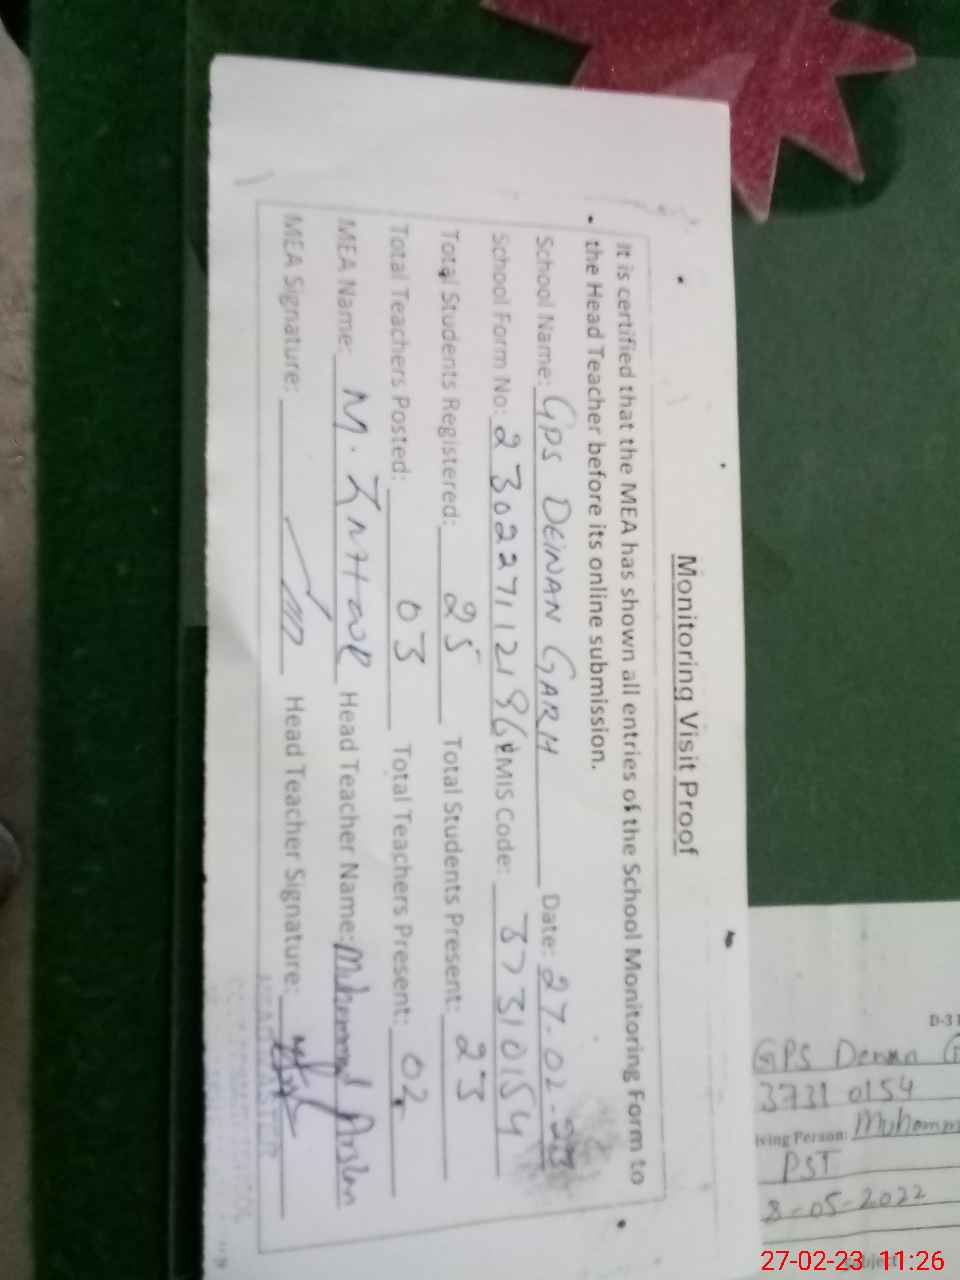 Monitoring Visit Proof
It is certified that the MEA has shown all entries of the School Monitoring Form to
the Head Teacher before its online submission.
School Name: GPS DEINAN GARH Date: 27-02-23
School Form No: 2302271121964 EMIS Code: 37310154
Total Students Registered: 25 Total Students Present: 23
Total Teachers Posted: 03 Total Teachers Present: 02
MEA Name: M. Head Teacher Name: Muhammad Arslan
MEA Signature: Head Teacher Signature:
HEADMASTER
D-31
GPS
3731 0154
iving Person: Muhamm
PST
8-05-2022
ubject
27-02-23 11:26